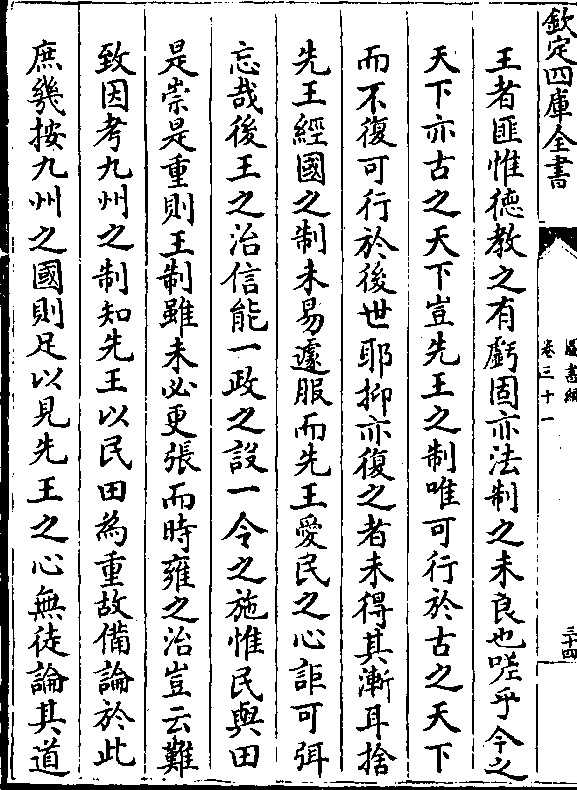 欽定四庫全書
圖書編
卷三十一
三十四
王者匪惟德教之有虧固亦法制之未良也嗟乎今之
天下亦古之天下豈先王之制唯可行於古之天下
而不復可行於後世耶抑亦復之者未得其漸耳捨
先王經國之制未易遽服而先王愛民之心詎可弭
忘哉後王之治信能一政之設一令之施惟民與田
是崇是重則王制雖未必更張而時雍之治豈云難
致因考九州之制知先王以民田為重故備論於此
庶幾按九州之國則足以見先王之心無徒論其道